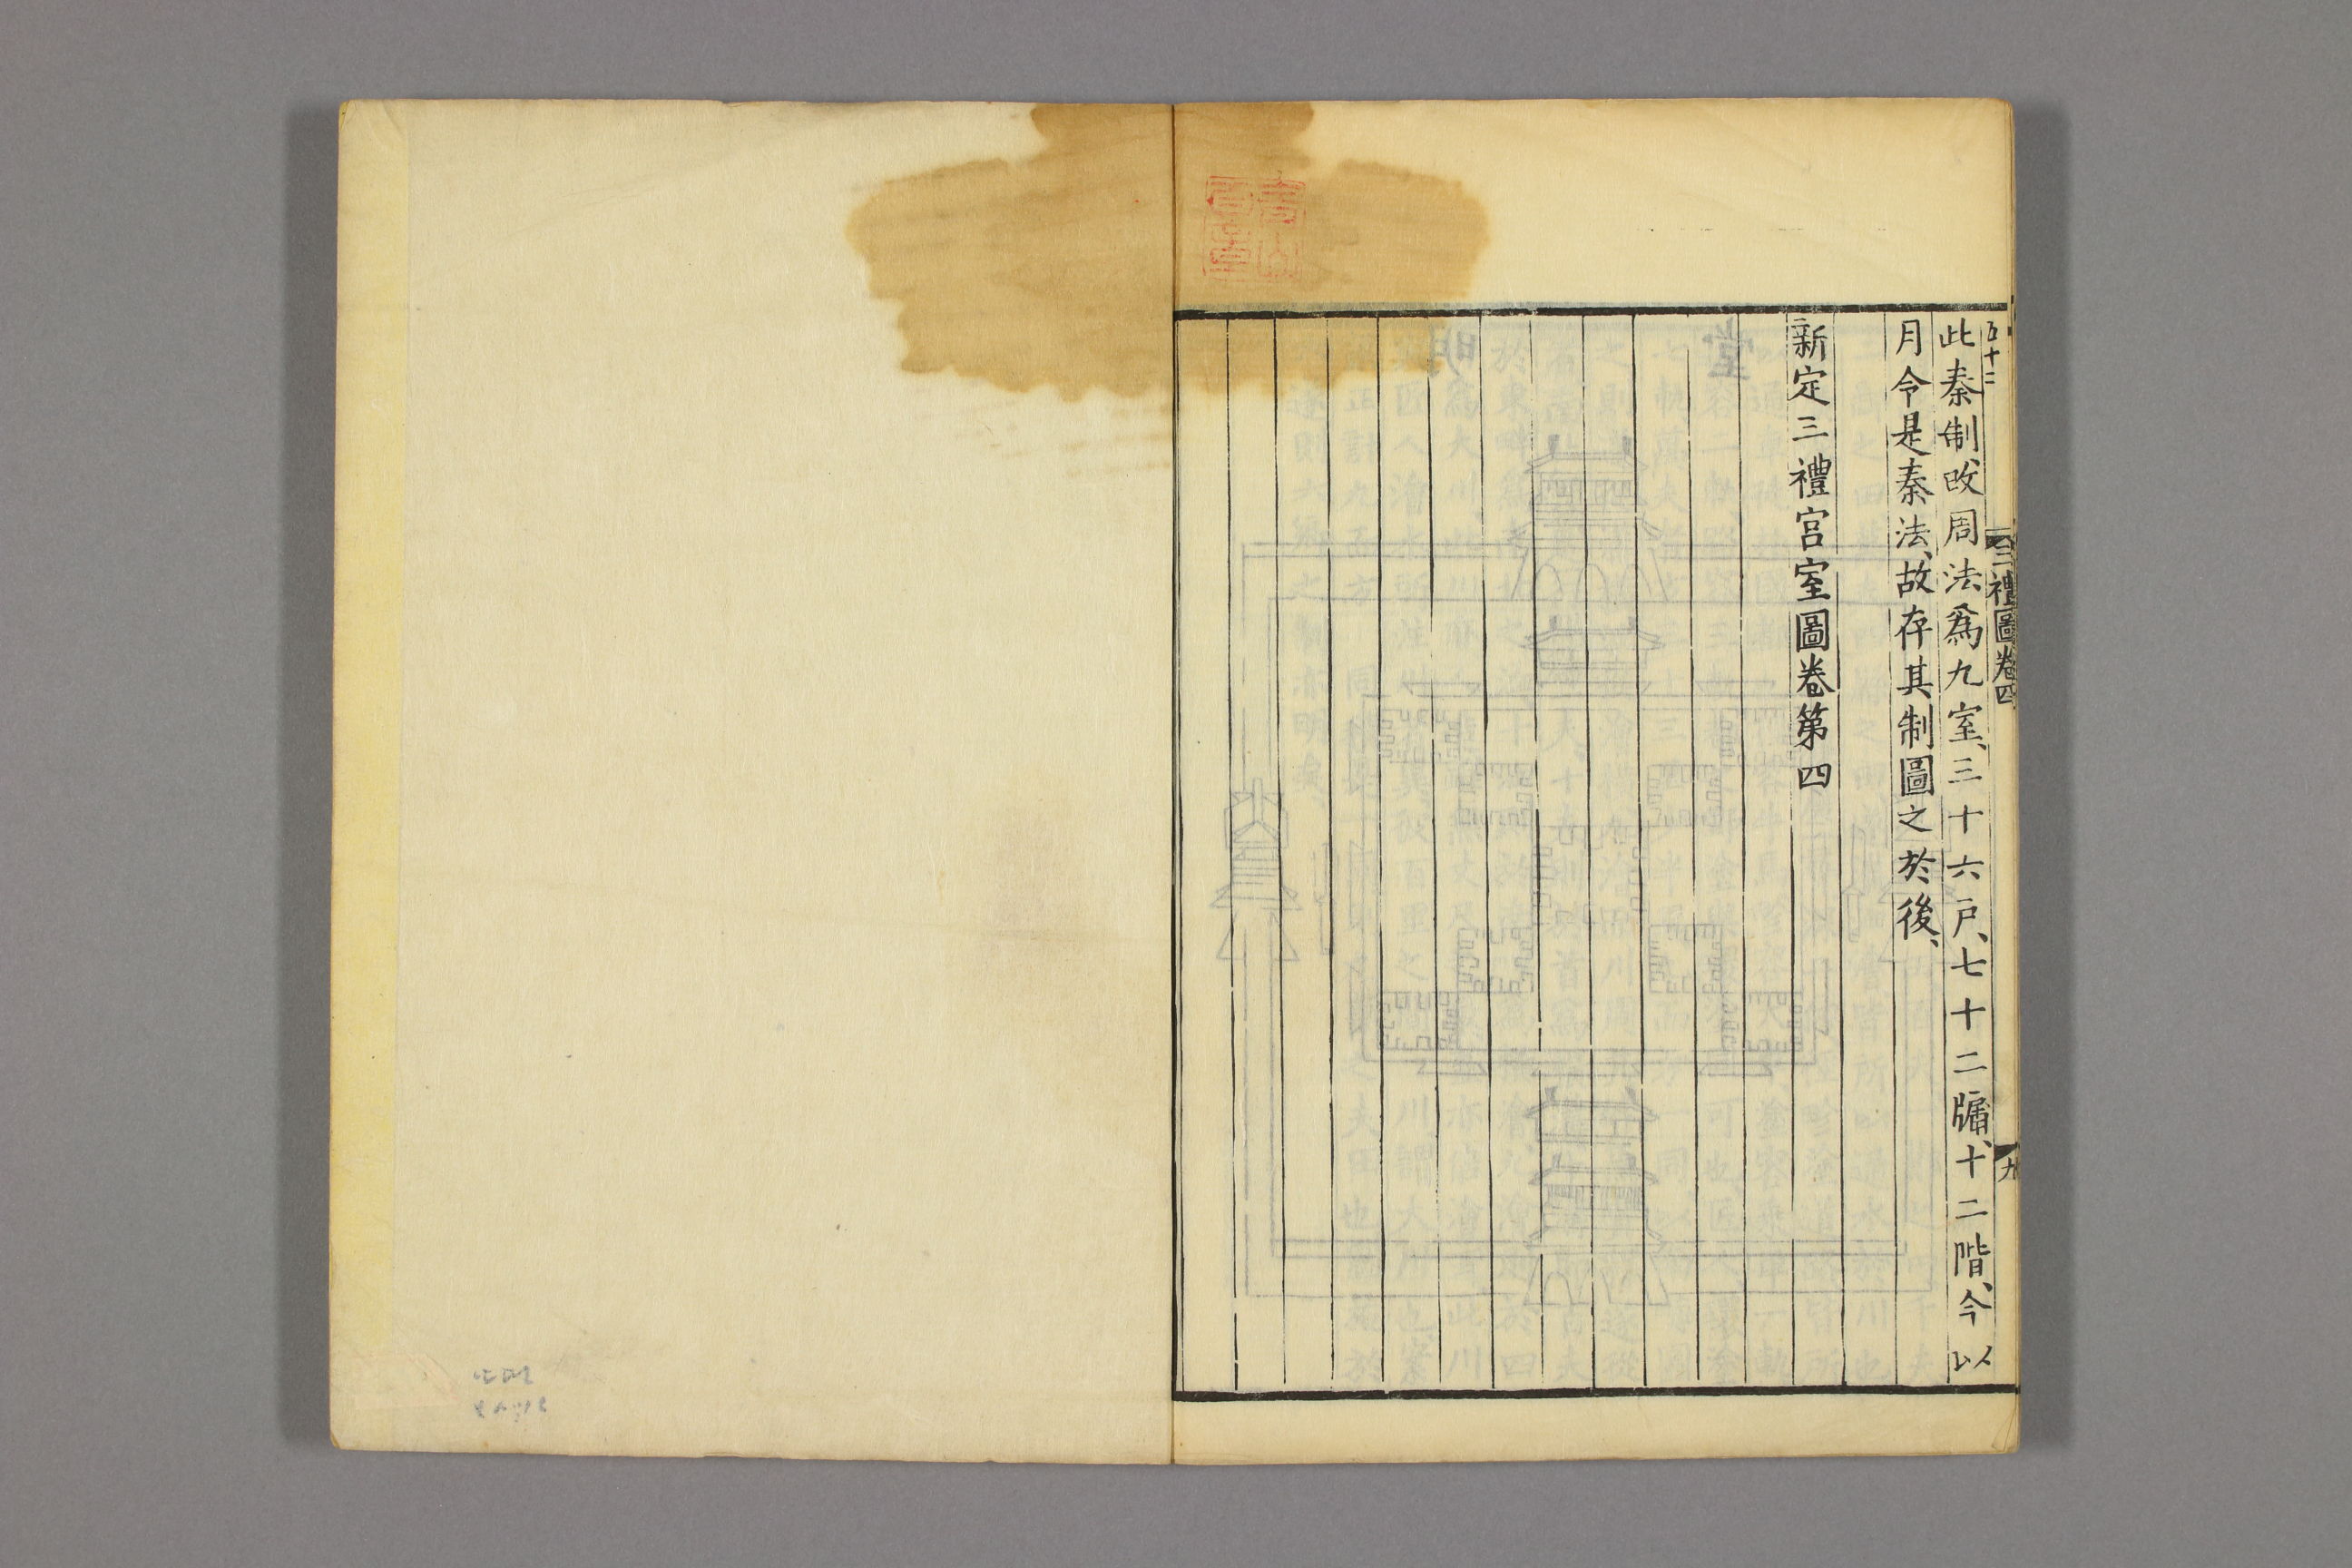 五十二
三禮圖卷四
九
此秦制、改周法爲九室、三十六戶、七十二牖、十二階、今以
月令是秦法、故存其制圖之於後、
新定三禮宮室圖卷第四